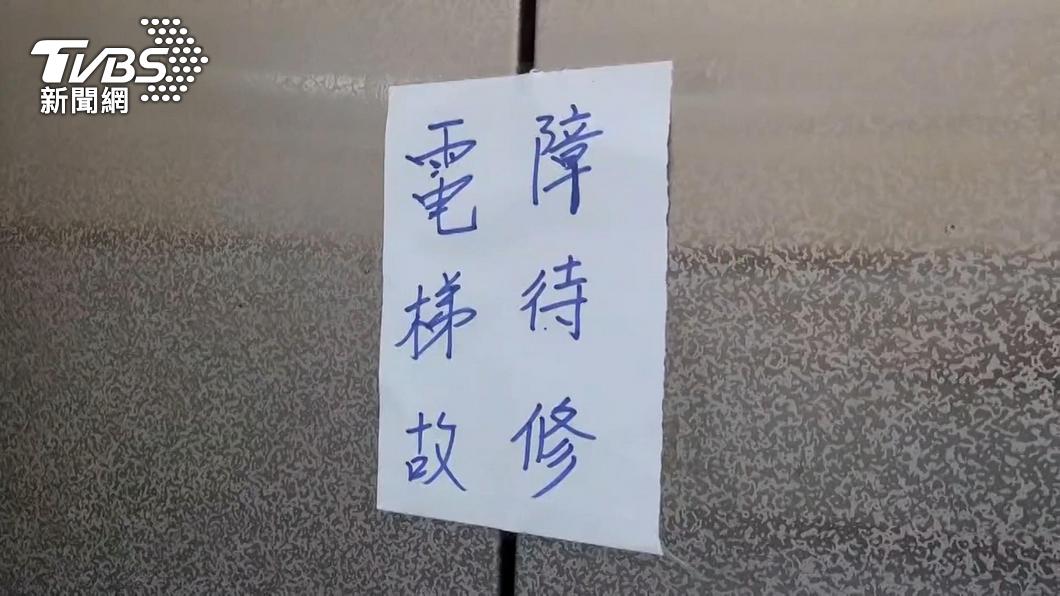 TVBS
新聞網
電梯故
障待修